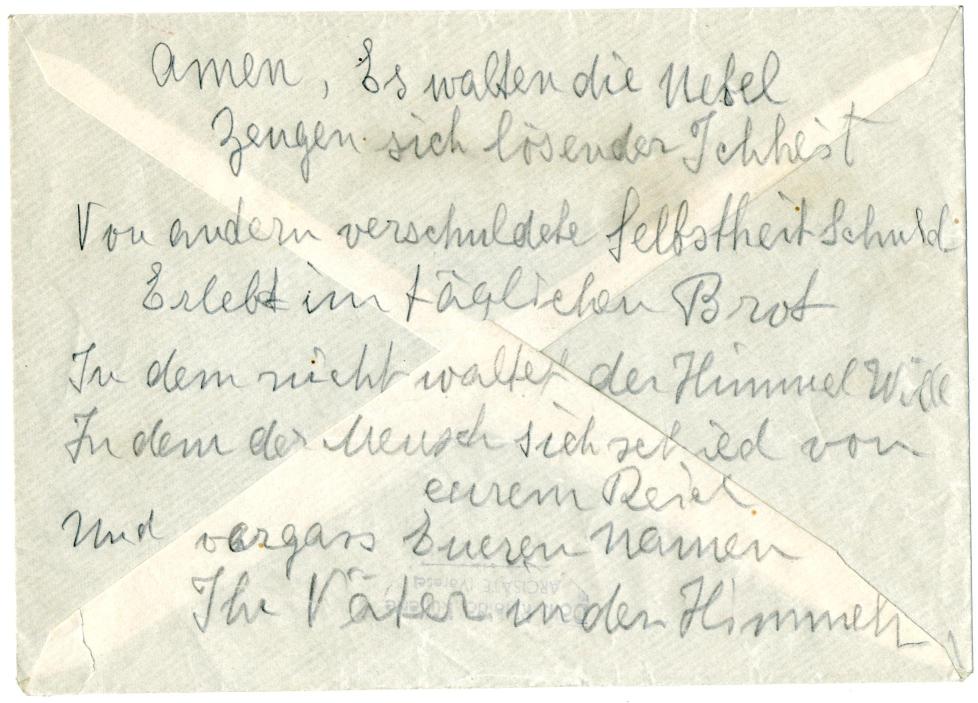 Amen, Es walten die Nebel
Zeugen sich lösender Ichheit
Von andern verschuldete Selbstheit Schuld
Erlebt im täglichen Brot
In dem nicht waltet der Himmel Wille
In dem der Mensch sich schied von
eurem Reich
Und vergass Eueren Namen
Ihr Väter in den Himmeln
ARCISATE (Varese)